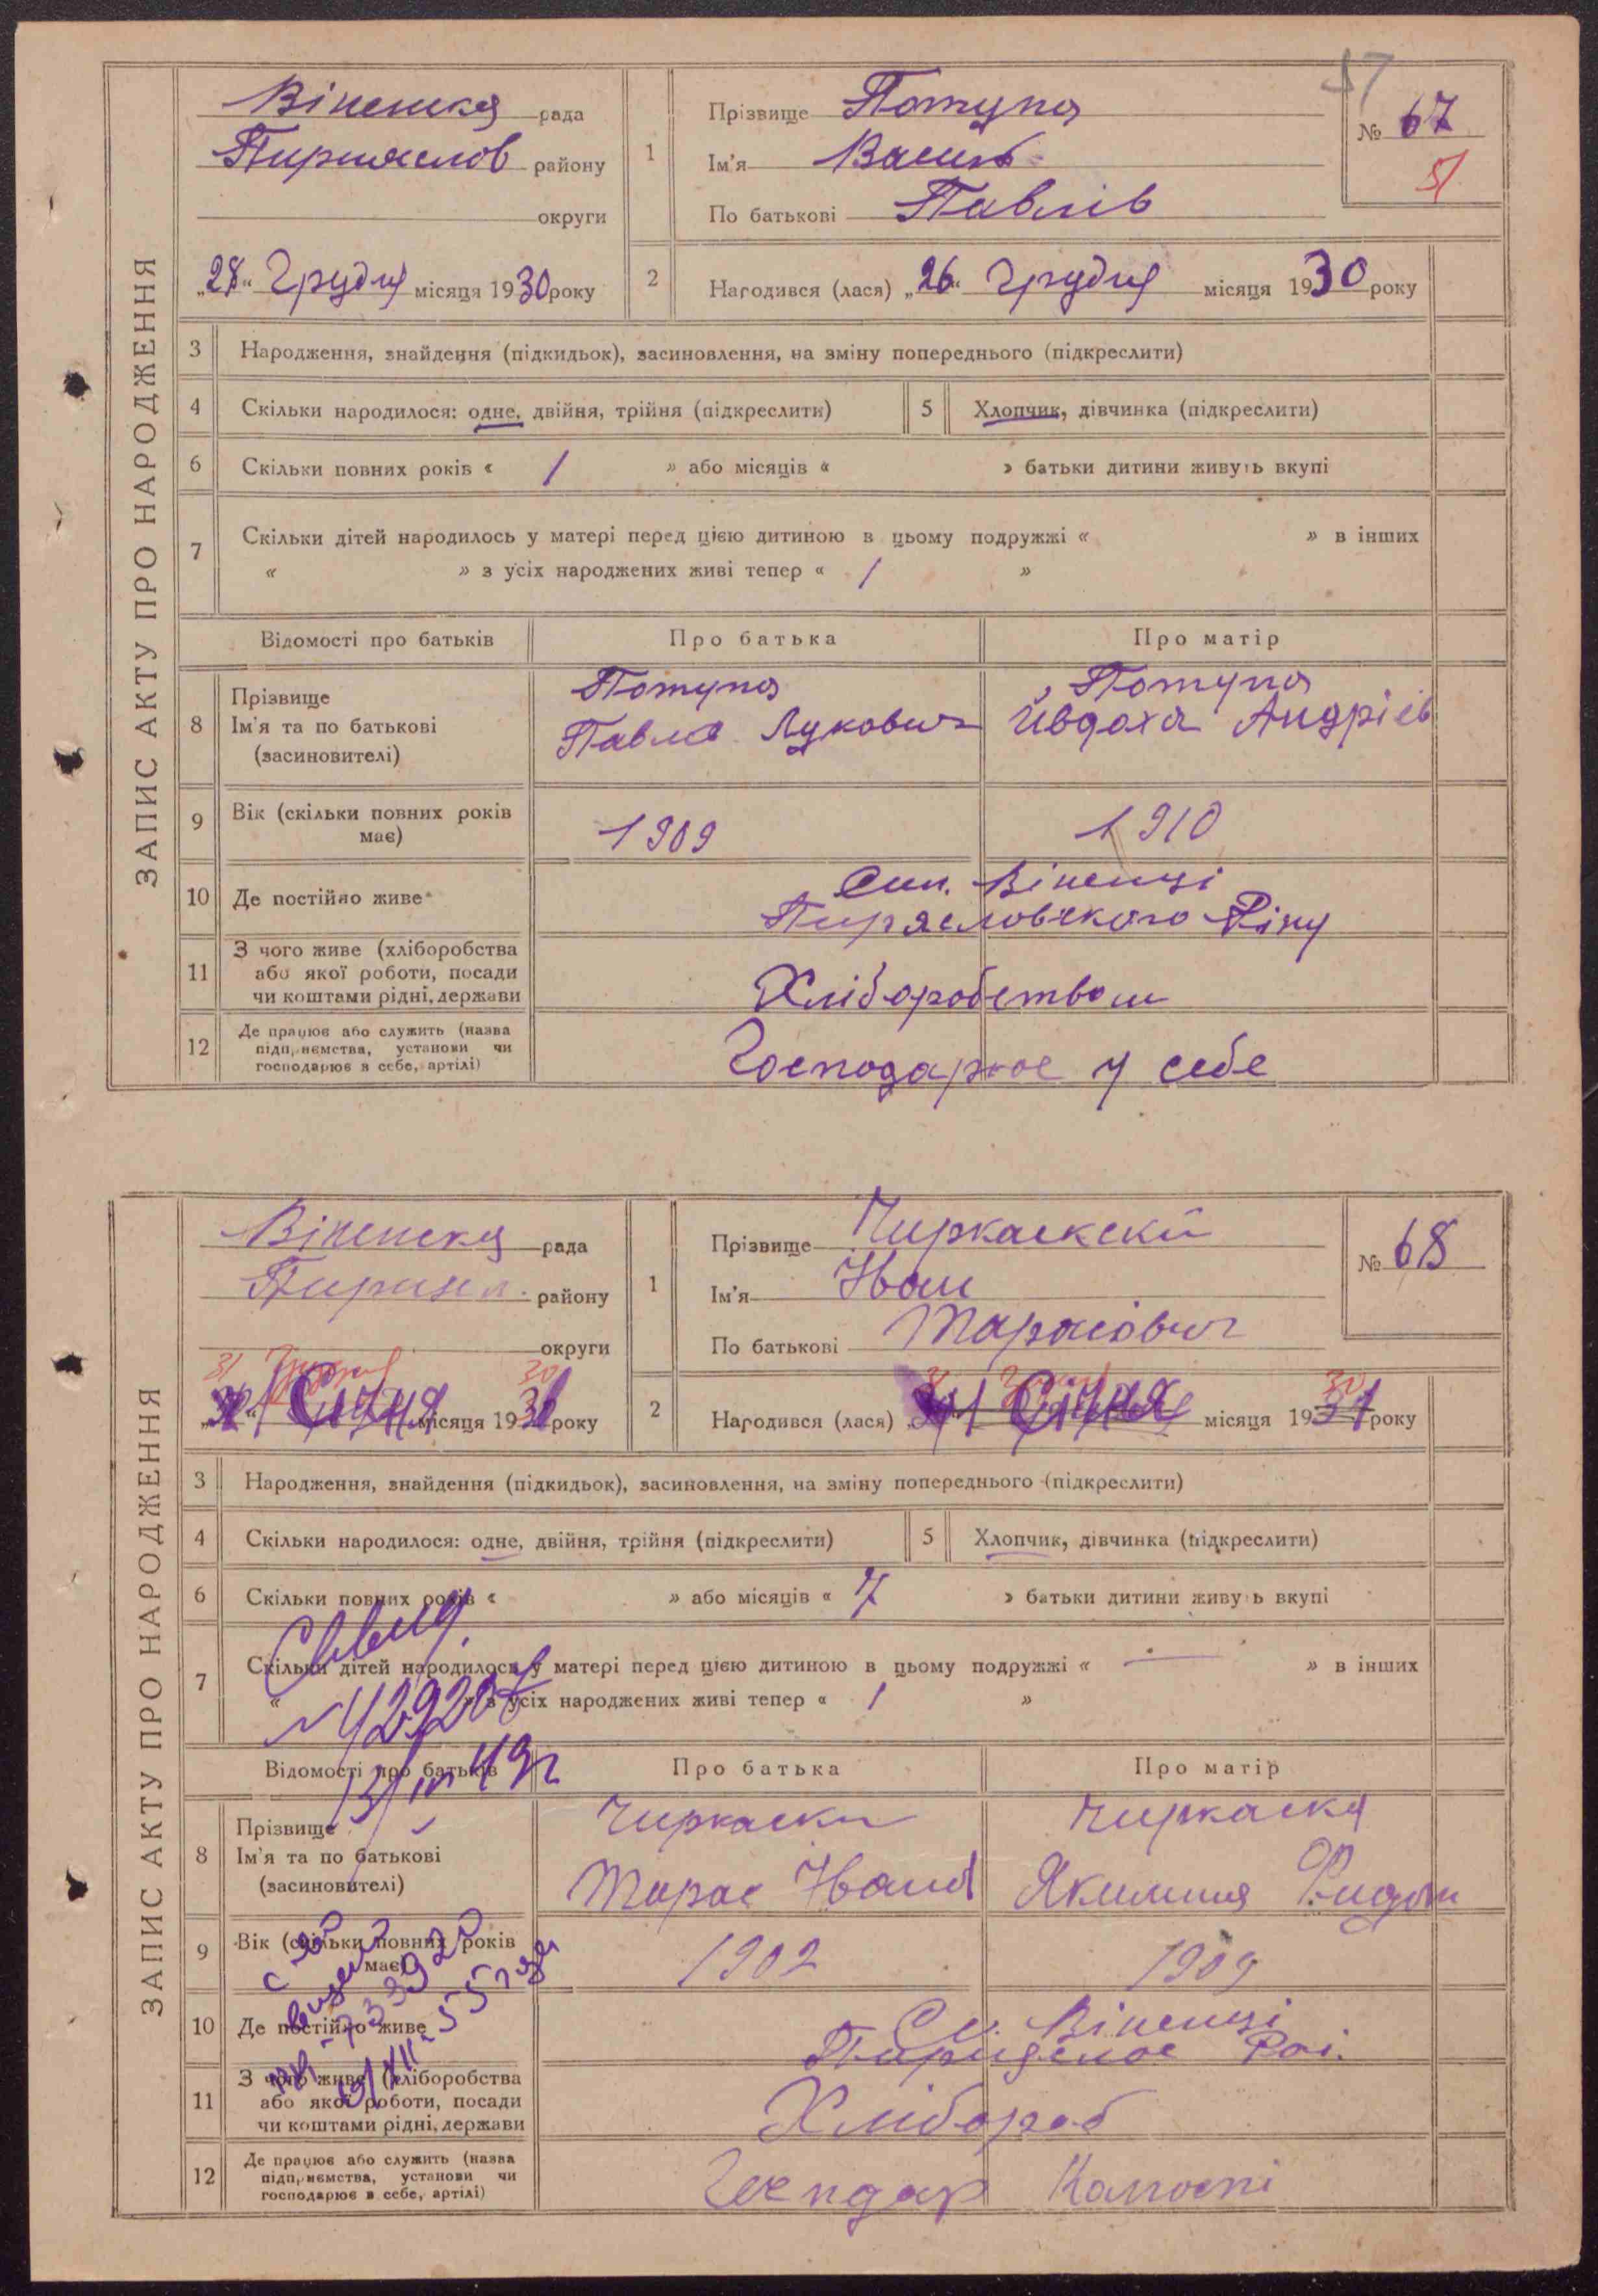 57
ЗАПИС АКТУ ПРО НАРОДЖЕННЯ
Віненська рада
району
округи
„28“ Грудня місяця 1930 року
1
Прізвище Потупа
Ім'я Василь
По батькові Павлів
№ 67
51
2
Народився (лася) „26“ Грудня місяця 1930 року
3 Народження, знайдення (підкидьок), засиновлення, на зміну попереднього (підкреслити)
4 Скільки народилося: одне, двійня, трійня (підкреслити)
5 Хлопчик, дівчинка (підкреслити)
6 Скільки повних років « 1 » або місяців « » батьки дитини живуть вкупі
7 Скільки дітей народилось у матері перед цією дитиною в цьому подружжі « » в інших
« » з усіх народжених живі тепер « 1 »
Відомості про батьків Про батька Про матір
8 Прізвище
Ім'я та по батькові
(засиновителі)
Потупа
Павло Лукович
Потупа
Ївдоха Андріїв
9 Вік (скільки повних років
має)
1909 1910
10 Де постійно живе
Віненці
11 З чого живе (хліборобства
або якої роботи, посади
чи коштами рідні, держави
Хліборобством
12 Де працює або служить (назва
підприємства, установи чи
господарює в себе, артілі)
Господарює у себе
ЗАПИС АКТУ ПРО НАРОДЖЕННЯ
Віненська рада
району
округи
31 Грудня 30
1 Січня місяця 1931 року
1
Прізвище Чиркаский
Ім'я Іван
По батькові Тарасович
№ 68
2
31 30
Народився (лася) 1 Січня місяця 1931 року
3 Народження, знайдення (підкидьок), засиновлення, на зміну попереднього (підкреслити)
4 Скільки народилося: одне, двійня, трійня (підкреслити)
5 Хлопчик, дівчинка (підкреслити)
6 Скільки повних років « » або місяців « 7 » батьки дитини живуть вкупі
7 Скільки дітей народилось у матері перед цією дитиною в цьому подружжі « — » в інших
« » з усіх народжених живі тепер « 1 »
Відомості про батьків Про батька Про матір
8 Прізвище
Ім'я та по батькові
(засиновителі)
Чиркаски
Тарас Іванов
Чиркаска
Якилина
9 Вік (скільки повних років
має)
1902 1909
10 Де постійно живе
Віненці
11 З чого живе (хліборобства
або якої роботи, посади
чи коштами рідні, держави
Хлібороб
12 Де працює або служить (назва
підприємства, установи чи
господарює в себе, артілі)